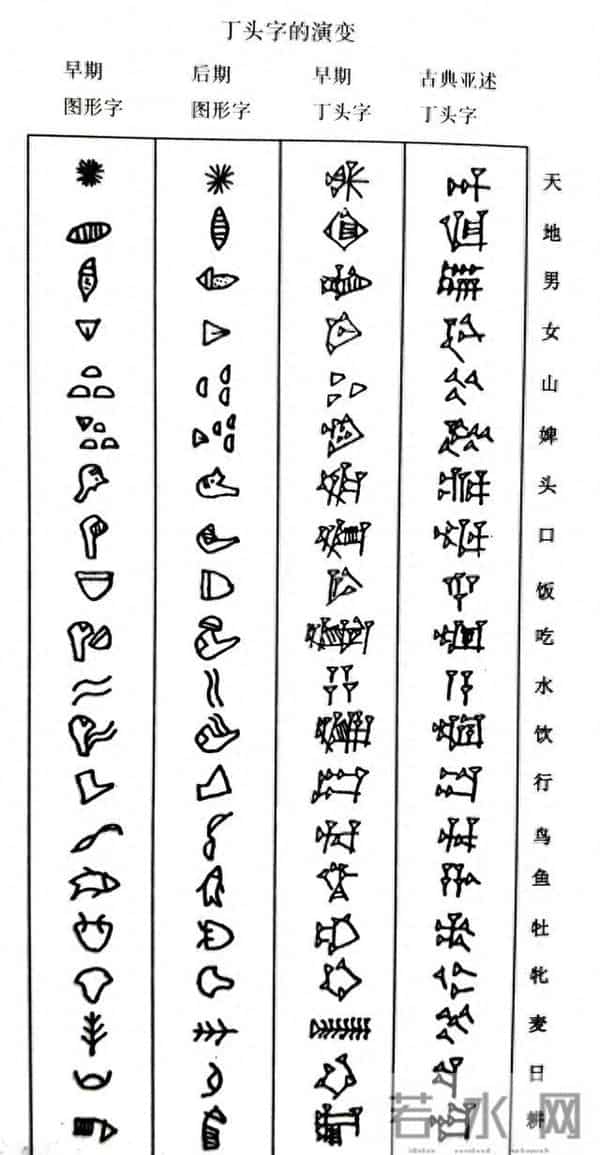 丁头字的演变
早期 后期 早期 古典亚述
图形字 图形字 丁头字 丁头字
天
地
男
女
山
婢
头
口
饭
吃
水
饮
行
鸟
鱼
牡
牝
麦
日
耕
若水网